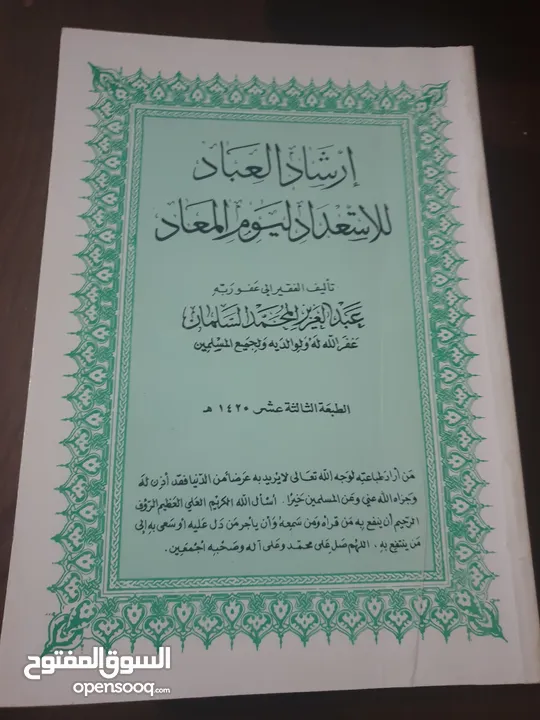 إرشاد العباد
للاستعداد ليوم المعاد
تأليف الفقير إلى عفو ربه
عبد العزيز المحمد السلمان
غفر الله له ولوالديه ولجميع المسلمين
الطبعة الثالثة عشر ١٤٢٠ هـ
من أراد طباعته لوجه الله تعالى لا يريد به عرضا من الدنيا فقد أذن له
وجزاه الله عني وعن المسلمين خيرا . أسأل الله الكريم العلي العظيم الرؤف
الرحيم أن ينفع به من قرأه ومن سمعه وأن يأجر من دل عليه أو سعى به إلى
من ينتفع به ، اللهم صل على محمد وعلى آله وصحبه أجمعين .
السوق المفتوح
opensooq.com